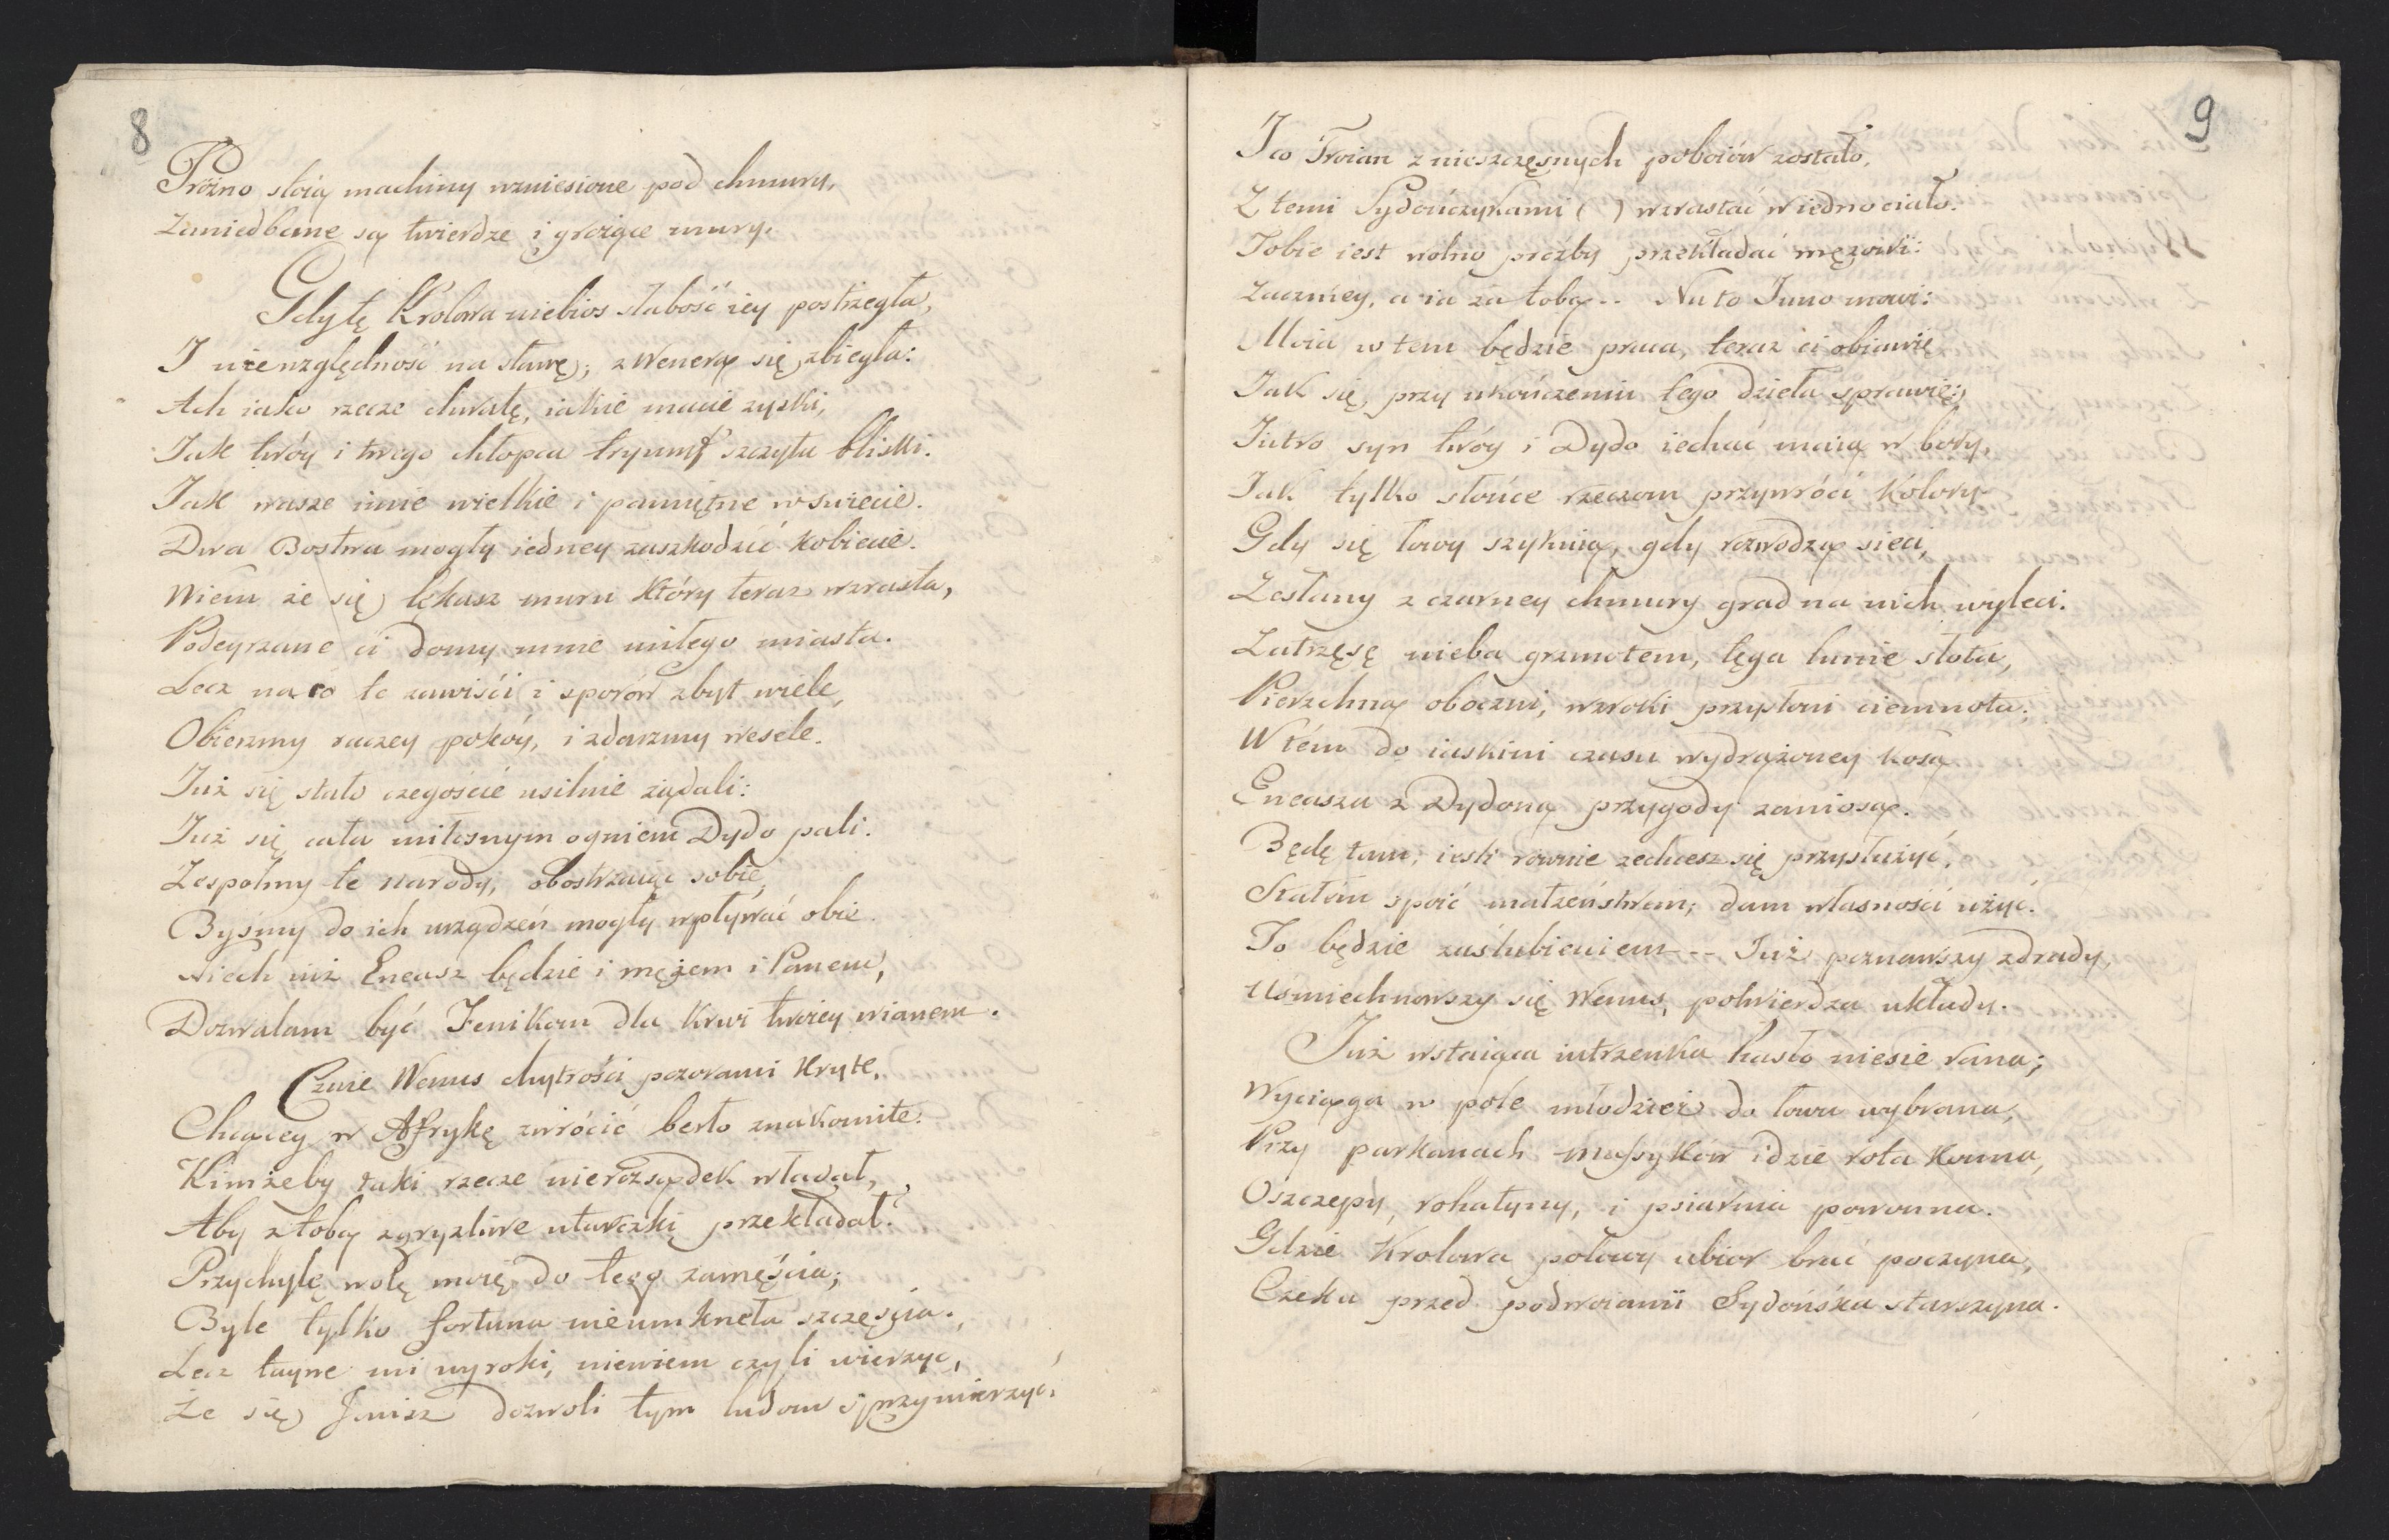 8
Próżno stoią machiny wzniesione pod chmury,
Zaniedbane są twierdze i grożące mury.
Gdy tę Krolowa niebios słabość iey postrzegła,
I niewzględność na sławę; z Wenerą się zbiegła:
Ach iako rzecze chwałę, iakie macie zyski,
Jak twóy i twego chłopca tryumf szczytu bliski.
Jak wasze imie wielkie i pamiętne w świecie.
Dwa Bostwa mogły iedney zaszkodzić kobiecie.
Wiem że się lękasz muru który teraz wzrasta,
Podeyrzane ci domy mnie miłego miasta.
Lecz na co te zawiści i sporów zbyt wiele,
Obierzmy raczey pokóy, i zdarzmy wesele.
Już się stało czegoście usilnie żądali:
Już się cała miłosnym ogniem Dydo pali.
Zespolmy te narody, obostrzaiąc sobie,
Byśmy do ich urządzeń mogły wpływać obie.
Niech już Eneasz będzie i mężem i Panem,
Dozwalam być Fenikom dla krwi twoiey wianem.
Czuie Wenus chytrości pozorami kryte,
Chcącey w Afrykę zwrócić berło znakomite.
Kimżeby taki rzecze nierozsądek władał,
Aby z tobą zgryzliwe utarczki przekładał?
Przychylę wolę moię do tego zamęścia;
Byle tylko fortuna nieumkneła szczęścia.
Lecz tayne mi wyroki, niewiem czyli wierzyć,
Że się Jowisz dozwoli tym ludom sprzymierzyć.
9
I co Troian z nieszczęsnych poboiów zostało,
Z temi Sydończykami ( ) wzrastać w iedno ciało.
Tobie iest wolno prozby przekładać mężowi:
Zaczniey, a ia za tobą -- Na to Juno mowi:
Moia w tem będzie praca, teraz ci obiawię
Jak się, przy ukończeniu tego dzieła sprawię:
Jutro syn twóy i Dydo iechać maią w bory,
Jak tylko słońce rzeczom przywróci kolory
Gdy się łowy szykuią, gdy rozwodzą sieci,
Zesłany z czarney chmury grad na nich wyleci.
Zatrzęsę nieba grzmotem, tęga lunie słota,
Pierzchną oboczni, wzroki przysłoni ciemnota:
W tém do iaskini czasu wydrążoney kosą
Eneasza z Dydoną przygody zaniosą.
Będę tam, iesli rownie zechcesz się przysłużyć,
Stałém spoić małżeństwem; dam własności użyć.
To będzie zaślubieniem -- Już poznawszy zdrady,
Uśmiechnowszy się Wenus, potwierdza układy.
Już wstaiąca iutrzenka hasło niesie rana;
Wyciąga w pole młodzież do łowu wybrana,
Przy parkanach Massyków idzie rota konna,
Oszczepy, rohatyny, i psiarnia powonna.
Gdzie Krolowa polowy ubior brać poczyna,
Czeka przed podwoiami Sydońska starszyna.